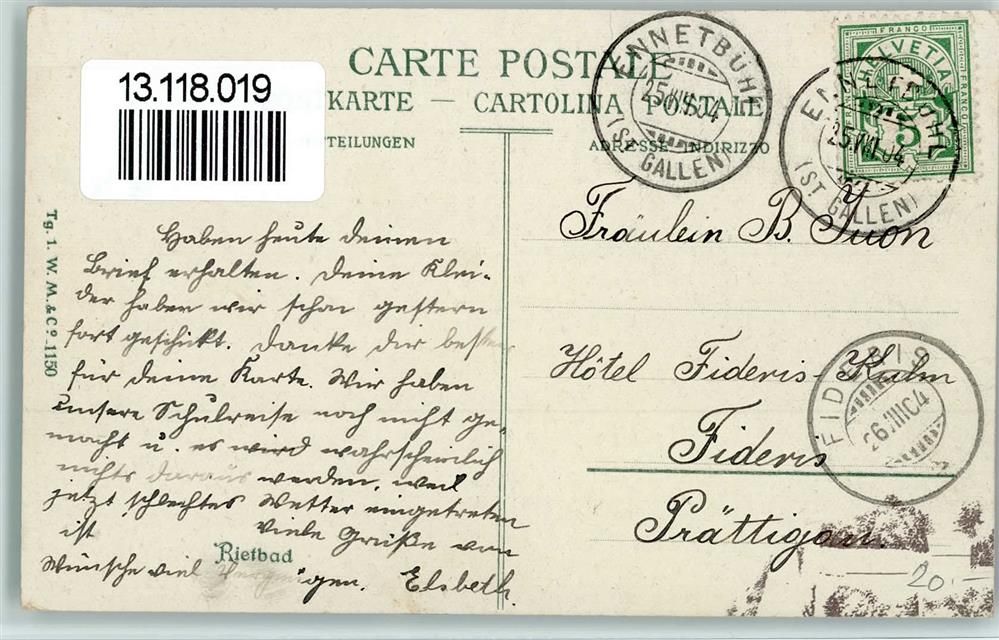 13.118.019
CARTE POSTALE
KARTE – CARTOLINA POSTALE
TEILUNGEN
ADRESSE INDIRIZZO
FRANCO
HELVETIA
5
ENNETBÜHL
25.VIII.04
(ST. GALLEN)
ENNETBÜHL
25.VIII.04
(ST. GALLEN)
Haben heute deinen
Brief erhalten. Deine Klei-
der haben wir schon gestern
fort geschickt. Danke dir besten
für deine Karte. Wir haben
unsere Schulreise noch nicht ge-
macht u. es wird wahrscheinlich
nichts daraus werden, weil
jetzt schlechtes Wetter eingetreten
ist Viele Grüße von
Wünsche viel Vergnügen. Elsbeth.
Rietbad
Tg. 1. W. M. & Cº. 1150
Fräulein B. Juon
Hôtel Fideris-Kulm
Fideris
Prättigau.
FIDERIS
26.VIII.04
20.–